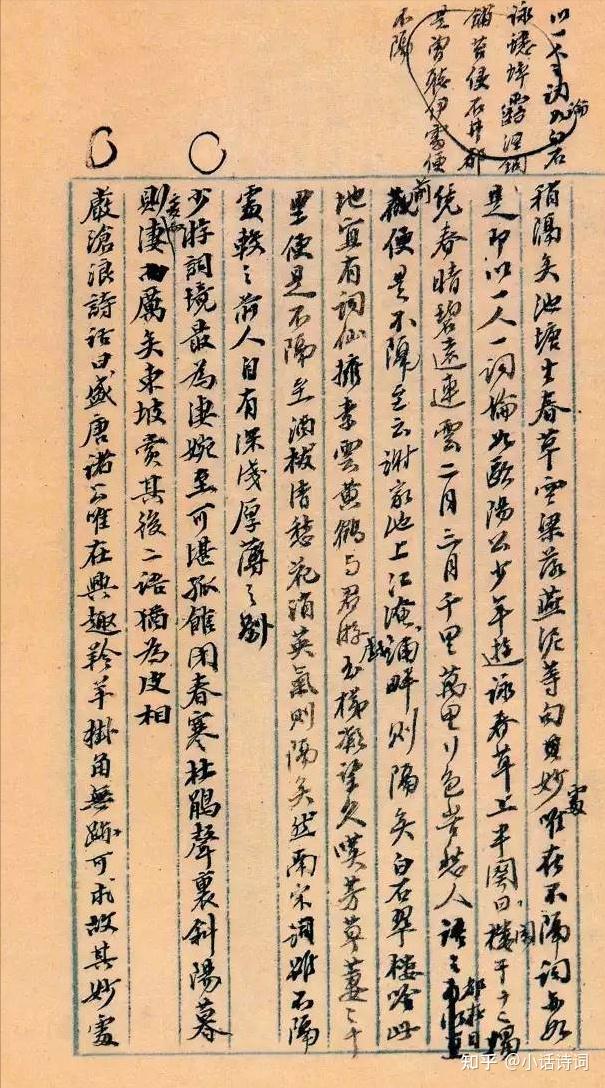 以一人之词論如白石
詠蟋蟀露溼銅
鋪苔侵石井都
是曾聽伊處便
不隔
稍隔矣池塘生春草空梁落燕泥等句其妙處唯在不隔詞亦如
是即以一人一詞論如歐陽公少年遊詠春草上半闋曰闌干十二獨
凭春晴碧遠連雲二月三月千里萬里行色苦愁人語語都在目
前便是不隔至云謝家池上江淹浦畔則隔矣白石翠樓吟此
地宜有詞仙擁素雲黄鶴与君游戲玉梯凝望久嘆芳草萋萋千
里便是不隔至酒祓清愁花消英氣則隔矣然南宋詞雖不隔
處較之前人自有深淺厚薄之別
少游詞境最為淒婉至可堪孤館閉春寒杜鵑聲裏斜陽暮
則變而淒厲矣東坡賞其後二語猶為皮相
嚴滄浪詩話曰盛唐諸公唯在興趣羚羊掛角無跡可求故其妙處
知乎 @小话诗词